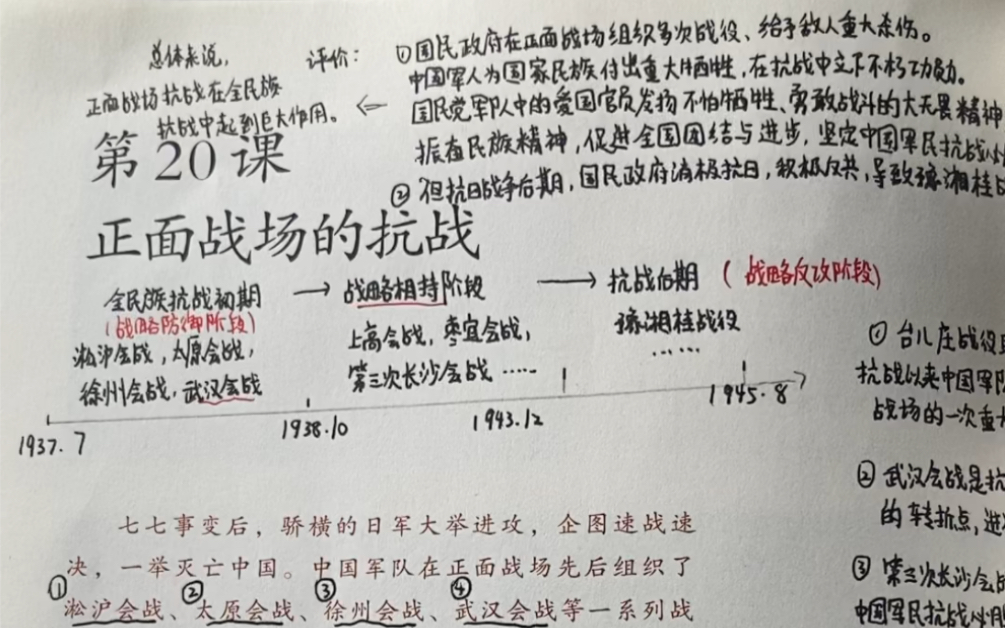 总体来说，
正面战场抗战在全民族
抗战中起到巨大作用。
评价：
①国民政府在正面战场组织多次战役、给予敌人重大杀伤。
中国军人为国家民族付出重大牺牲，在抗战中立下不朽功勋。
国民党军队中的爱国官兵发扬不怕牺牲、勇敢战斗的大无畏精神
振奋民族精神，促进全国团结与进步，坚定中国军民抗战
②但抗日战争后期，国民政府消极抗日，积极反共，导致豫湘桂
第20课
正面战场的抗战
全民族抗战初期 → 战略相持阶段 → 抗战后期（战略反攻阶段）
（战略防御阶段）
淞沪会战，太原会战，
徐州会战，武汉会战
上高会战，枣宜会战，
第三次长沙会战……
豫湘桂战役
……
1937.7 1938.10 1943.12 1945.8
①台儿庄战役
抗战以来中国军队
战场的一次重大
②武汉会战是抗
的转折点，进
③第三次长沙会战
中国军民抗战必胜
七七事变后，骄横的日军大举进攻，企图速战速
决，一举灭亡中国。中国军队在正面战场先后组织了
①淞沪会战、②太原会战、③徐州会战、④武汉会战等一系列战